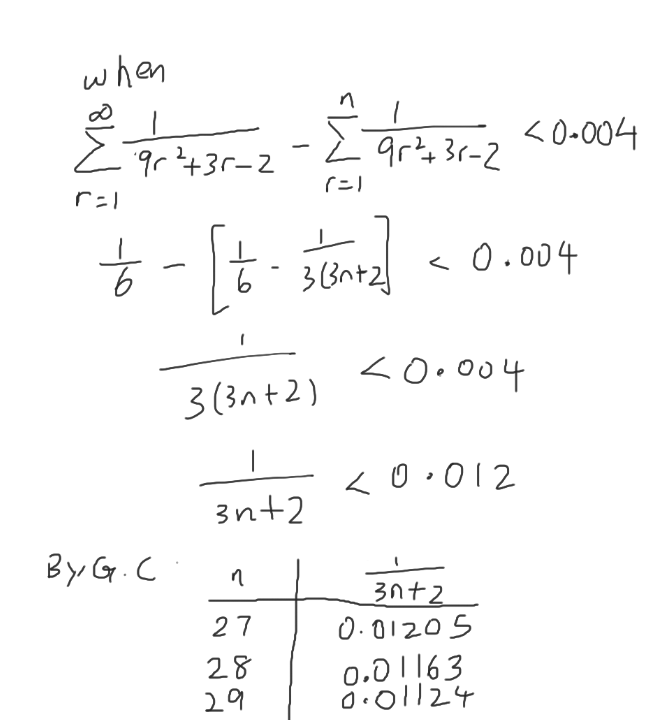 when
∞ ∑ r=1 1/(9r²+3r-2) - n ∑ r=1 1/(9r²+3r-2) <0.004
1/6 - [1/6 - 1/(3(3n+2)] < 0.004
1/(3(3n+2)) <0.004
1/(3n+2) < 0.012
By G.C n | 1/(3n+2)
27 | 0.01205
28 | 0.01163
29 | 0.01124